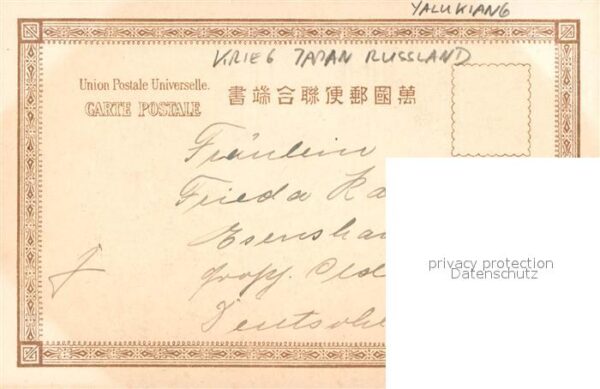 YALUKIANG
KRIEG JAPAN RUSSLAND
Union Postale Universelle.
CARTE POSTALE
書端合聯便郵國萬
Fräulein
Frieda Ka
Esensha
Deutschl
privacy protection
Datenschutz